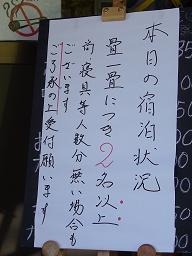 本日の宿泊状況
畳一畳につき2名以上
尚、寝具等人数分無い場合も
ございます
ご了承の上受付願います